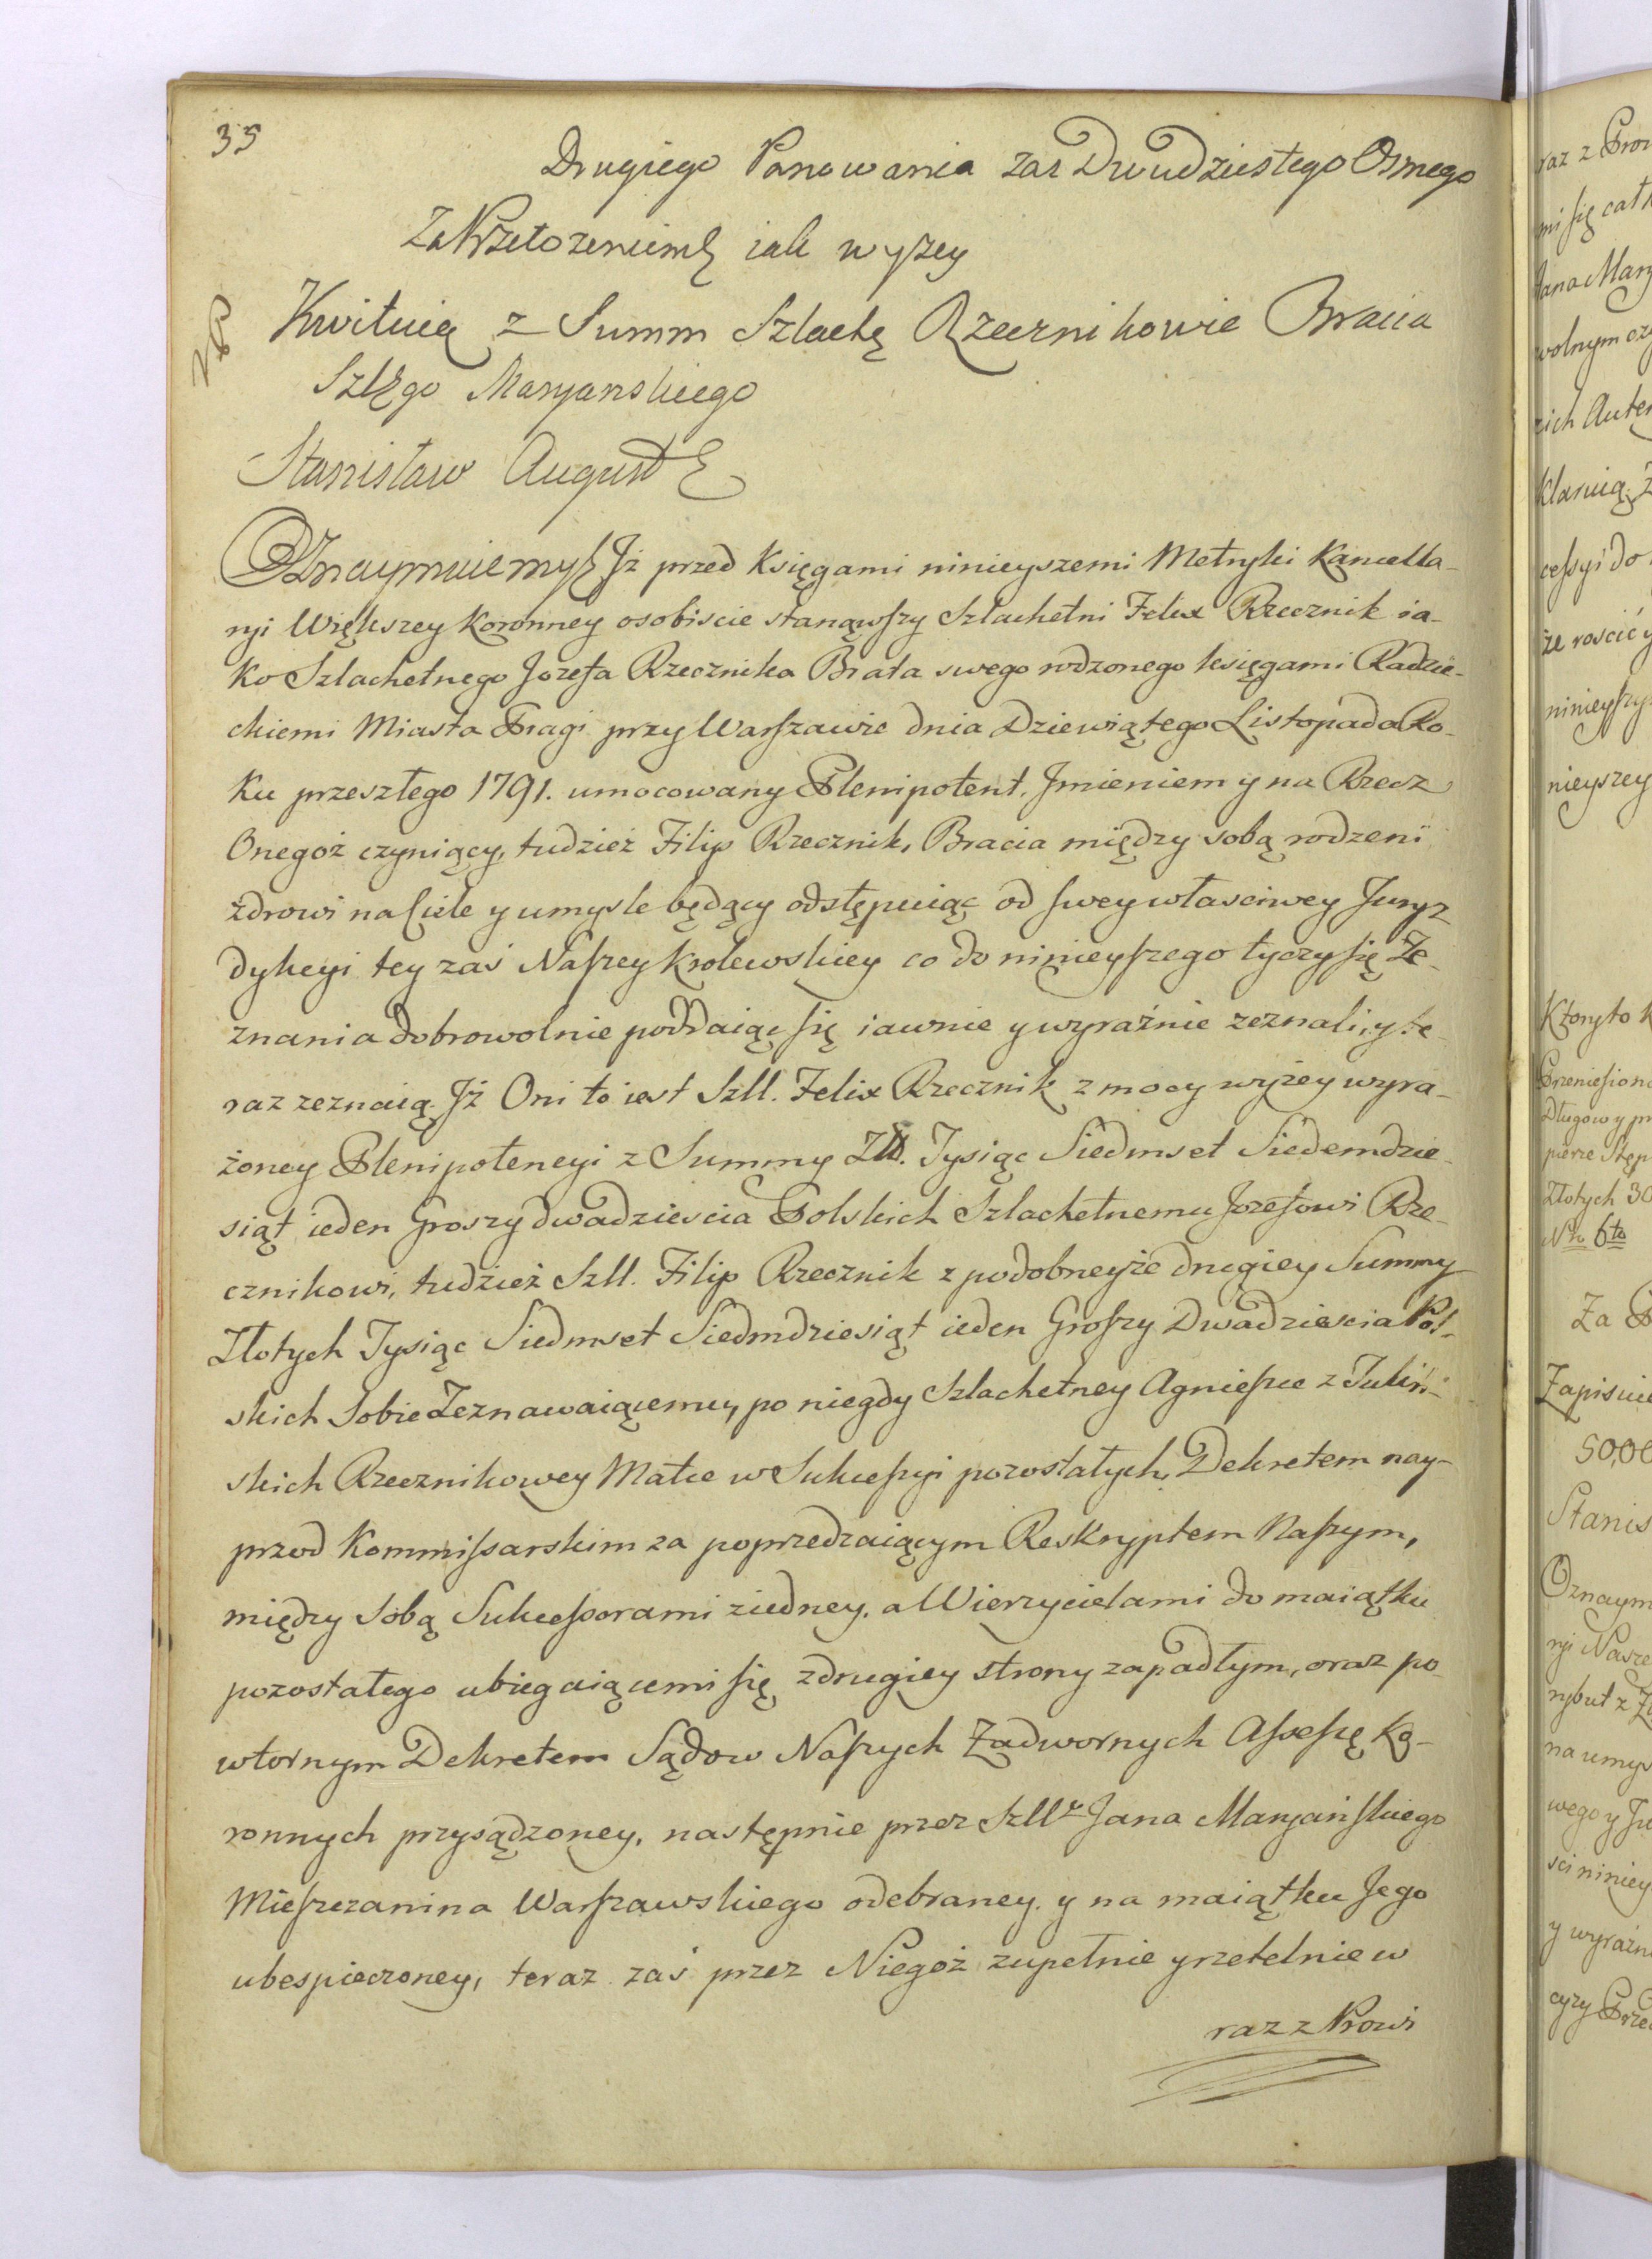 35
Drugiego Panowania zas Dwudziestego Osmego
Za Przełożeniem jak wyzey
Kwituią z Summ Szlachę Rzecznikowie Bracia
Szlgo Maryanskiego
Stanisław August
Oznaymuiemy Jż przed Księgami ninieyszemi Metryki Kancella-
ryi Większey Koronney osobiscie stanąwszy Szlachetni Felix Rzecznik ia-
ko Szlachetnego Jozefa Rzecznika Brata swego rodzonego księgami Radzie-
ckiemi Miasta Pragi przy Warszawie dnia Dziewiątego Listopada Ro-
ku przeszłego 1791. umocowany Plenipotent, Jmieniem y na Rzecz
Onegoż czyniący, tudzież Filip Rzecznik, Bracia między sobą rodzeni
zdrowi na Ciele y umysle będący odstępuiąc od swey własciwey Juryz
dykcyi tey zaś Naszey Krolewskiey co do ninieyszego tyczy się Ze-
znania dobrowolnie poddaiąc się iawnie y wyraźnie zeznali, y te-
raz zeznaią. Jż Oni to iest Szll. Felix Rzecznik z mocy wyżey wyra-
żoney Plenipotencyi z Summy Zll. Tysiąc Siedmset Siedemdzie-
siąt ieden Groszy dwadziescia Polskich Szlachetnemu Jozefowi Rze-
cznikowi, tudzież Szll. Filip Rzecznik z podobneyże drugiey Summy
Złotych Tysiąc Siedmset Siedmdziesiąt ieden Groszy Dwadziescia Pol-
skich Sobie Zeznawaiącemu, po niegdy Szlachetney Agnieszce z Juliń-
skich Rzecznikowey Matce w Sukcessyi pozostałych, Dekretem nay-
przod Kommissarskim za poprzedzaiącym Reskryptem Naszym,
między Sobą Sukcessorami ziedney, a Wierzycielami do maiątku
pozostałego ubiegaiącemi się zdrugiey strony zapadłym, oraz po-
wtornym Dekretem Sądow Naszych Zadwornych Assesś Ko-
ronnych przysądzoney, następnie przez Szll Jana Maryańskiego
Mieszczanina Warszawskiego odebraney, y na maiątku Jego
ubespieczoney, teraz zaś przez Niegoż zupełnie y rzetelnie w
raz z Prowi